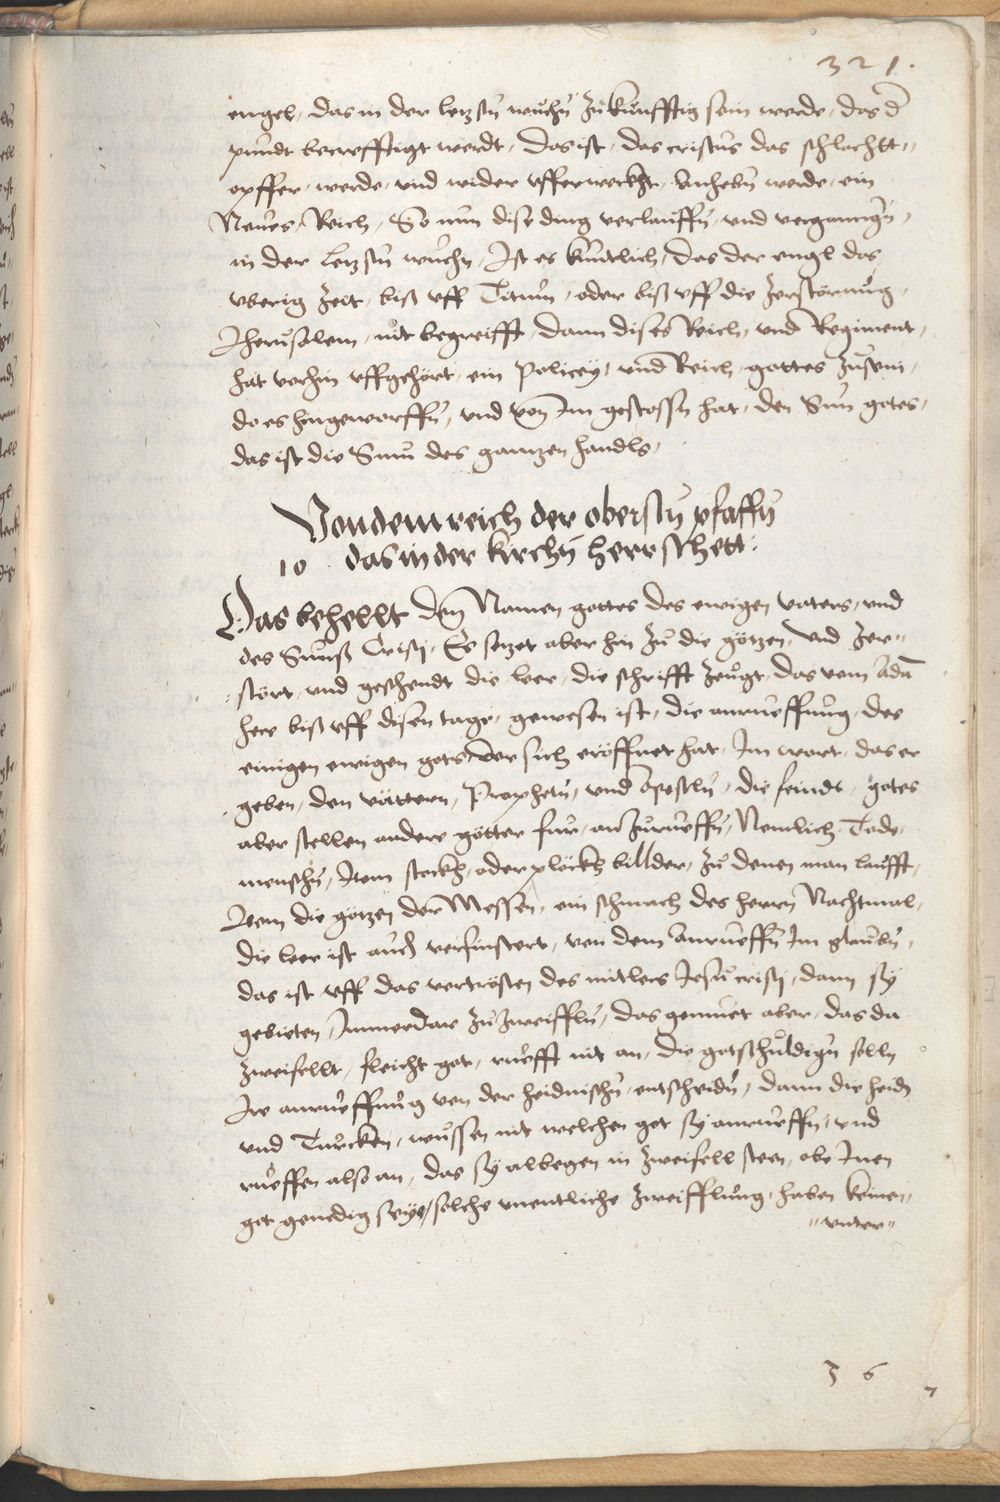 321.
engel, das in der letzstn̄ wuchn̄ zukünfftig sein werde, das d̄
pundt becrefftigt werdt, das ist, das cristus das schlachtt„
opffer, werde, vnd wider vfferweckht, Anhebn̄ werde, ein
Neues, Reich, So nun dise ding verlauffn̄, vnd verganngn̄,
in der letzstn̄ wuchn̄, Ist es kuntlich, das der engl das,
vberig zeit, biss vff Titum, oder biss vff die zerstörung,
Jherusalem, nit begreifft, dann dises Reich, vnd Regiment,
hat vorhin vffgehört, ein Policey, vnd Reich, gottes zusein,
do es hingeworffn̄, vnd von Im gestossn̄ hat, den Sun gotes,
das ist die Sum̄ des gantzen handls,
Von dem reich der oberstn̄ pfaffn̄
10 das in der kirchn̄ herrschett.
Das behellt den Namen gottes des ewigen vaters, vnd
des Suns Cristi, Es setzet aber hin zu die götzen, vnd zer„
stört, vnd geschendt die leer, die schrifft zeugt, das vom Adā
here biss vff disen tage, gewesen ist, die anrueffung, des
einigen ewigen gots, der sich eröffnet hat, Im wort, das er
geben, den vättern, Prophetn̄, vnd Apostln̄, die feindt, gotes
aber stellen andere götter fur, anzurueffn̄, Nemlich Tode,
menschn̄, Item stockh, oder plöckh billder, zu denen man laufft,
Item die götzen der Messen, ein schmach des herrn̄ Nachtmal,
die leer ist auch verfinstert, von dem Anrueffn̄ Im glaubn̄,
das ist vff das vertrösten des mitlers Jesu cristi, dann sy
gebieten, Immerdar zu zweiffln̄, das gemuet aber, das da
zweifellt, fleicht got, rüefft nit an, die gotschuldign̄ solln̄
Ire anrueffung von der heidnischn̄, entscheidn̄, dann die heidn̄
vnd Turcken, wussen nit welchen got sy anrueffn̄, vnd
rueffen also an, das sy albegen in zweifell steen, obe Inen
got genedig seye, solche vnentliche zweifflung, haben keinen,
„vnter„
36